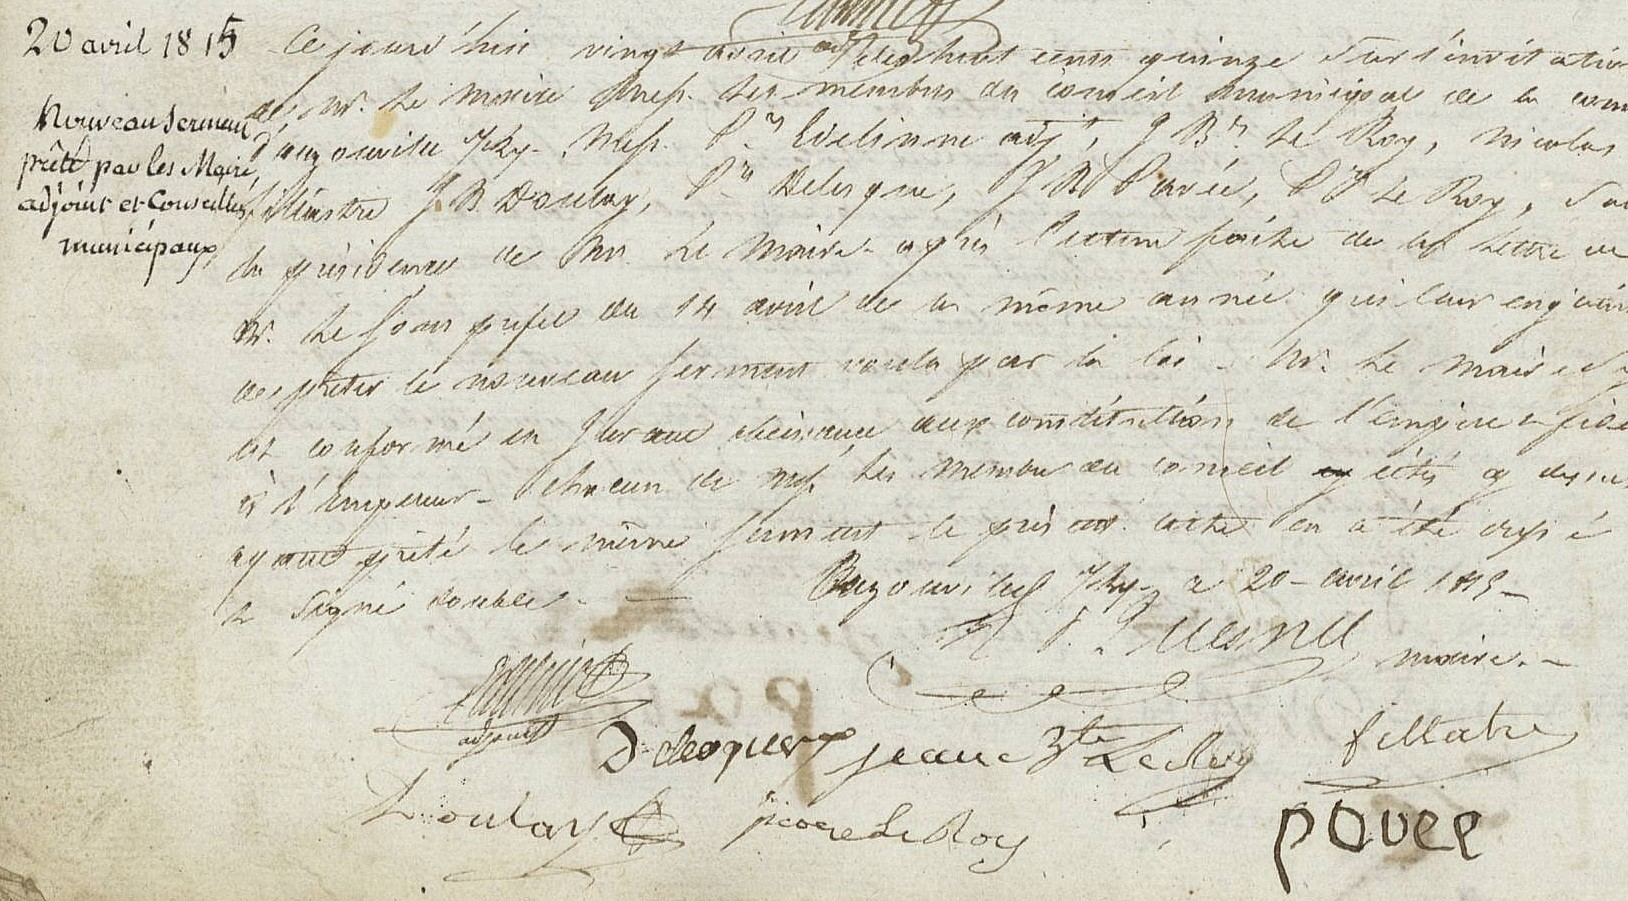 20 avril 1815
Nouveau serment
prêté par les Maire,
adjoint et Conseillers
municipaux
Ce jourd'hui vingt avril mil huit cent quinze sur l'invitation
de Mr. le Maire Mess. les membres du conseil municipal de la
d'auzouville Mess. Pre adjt, J Bte Le Roy, Nicolas
fillastre J B Doulay, Pre Delesque, J B Pavée, Pre Le Roy, sous
la présidence de Mr. Le Maire - après lecture faite de la lettre de
Mr. Le sous prefet du 14 avril de la même année qui leur enjoint
de prêter le nouveau serment voulu par la loi - Mr. Le Maire s'y
est conformé en jurant obeissance aux constitutions de l'empire & fidelité
à l'Empereur - chacun de Mess. Les membres du conseil cités cy dessus
ayant prêté le même serment le présent acte en a été
& signé double. -
auzouville a 20 - avril 1815 -
N P. Quesnel maire. -
adjoint
Delesque jean Bte Le Roy fillatre
Doulay pierre Le Roy
pavee